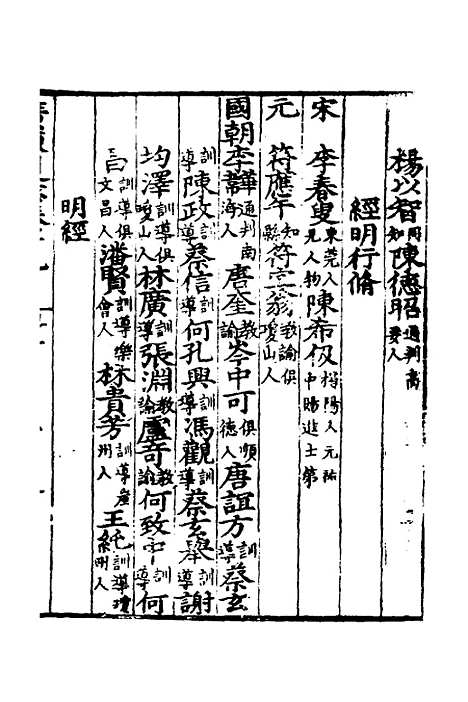 楊以智同知陳德昭通判高要人
經明行脩
宋 李春叟東莞人見人物陳希伋揭陽人元祐中賜進士第
元 符應午知縣符定翁教諭俱瓊山人
國朝李韡通判南海人 唐奎教諭岑中可俱順德人唐誼方訓導蔡玄
訓導陳政訓導蔡信訓導何孔興訓導馮觀訓導蔡玄舉訓導謝
均澤訓導俱瓊山人林廣訓導張淵教諭盧奇教諭何致中訓導何
昌訓導俱文昌人潘賢訓導樂會人林貴芳訓導崖州人王純訓導瓊州人
明經